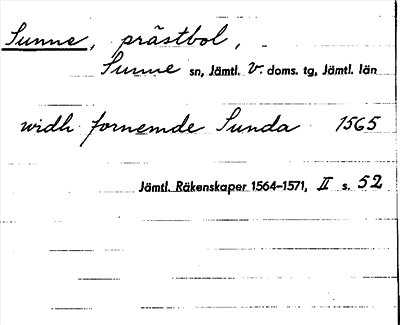 Sunne, prästbol,
Sunne sn, Jämtl. v. doms. tg, Jämtl. län
widh fornemde Sunda 1565
Jämtl. Räkenskaper 1564–1571, II s. 52